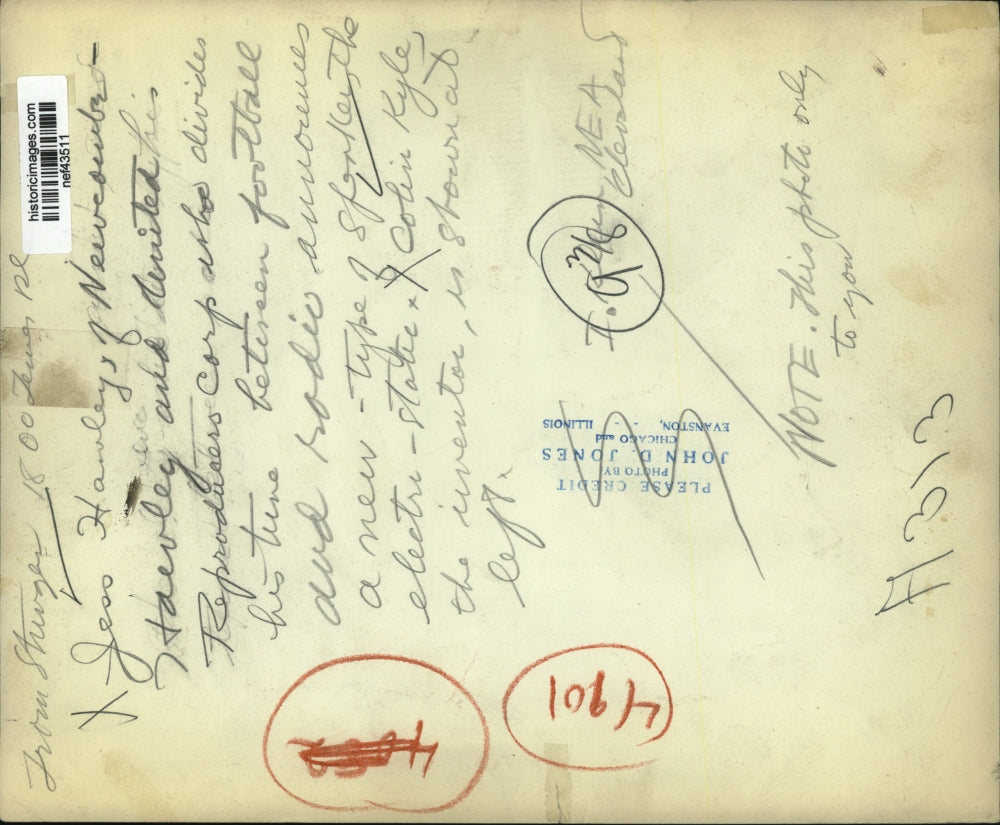 historicimages.com
nef43511
From
X Jess Hawley of Newcomb-
Hawley and United his
Reproducers Corp who divides
his time between football
and radio announces
a new-type of speaker the
electro-static. X Colin Kyle
the inventor, is shown at
left.
NEA
Cleveland
PLEASE CREDIT
PHOTO BY:
JOHN D. JONES
CHICAGO and
EVANSTON, - - ILLINOIS
NOTE. This photo only
to you
4901